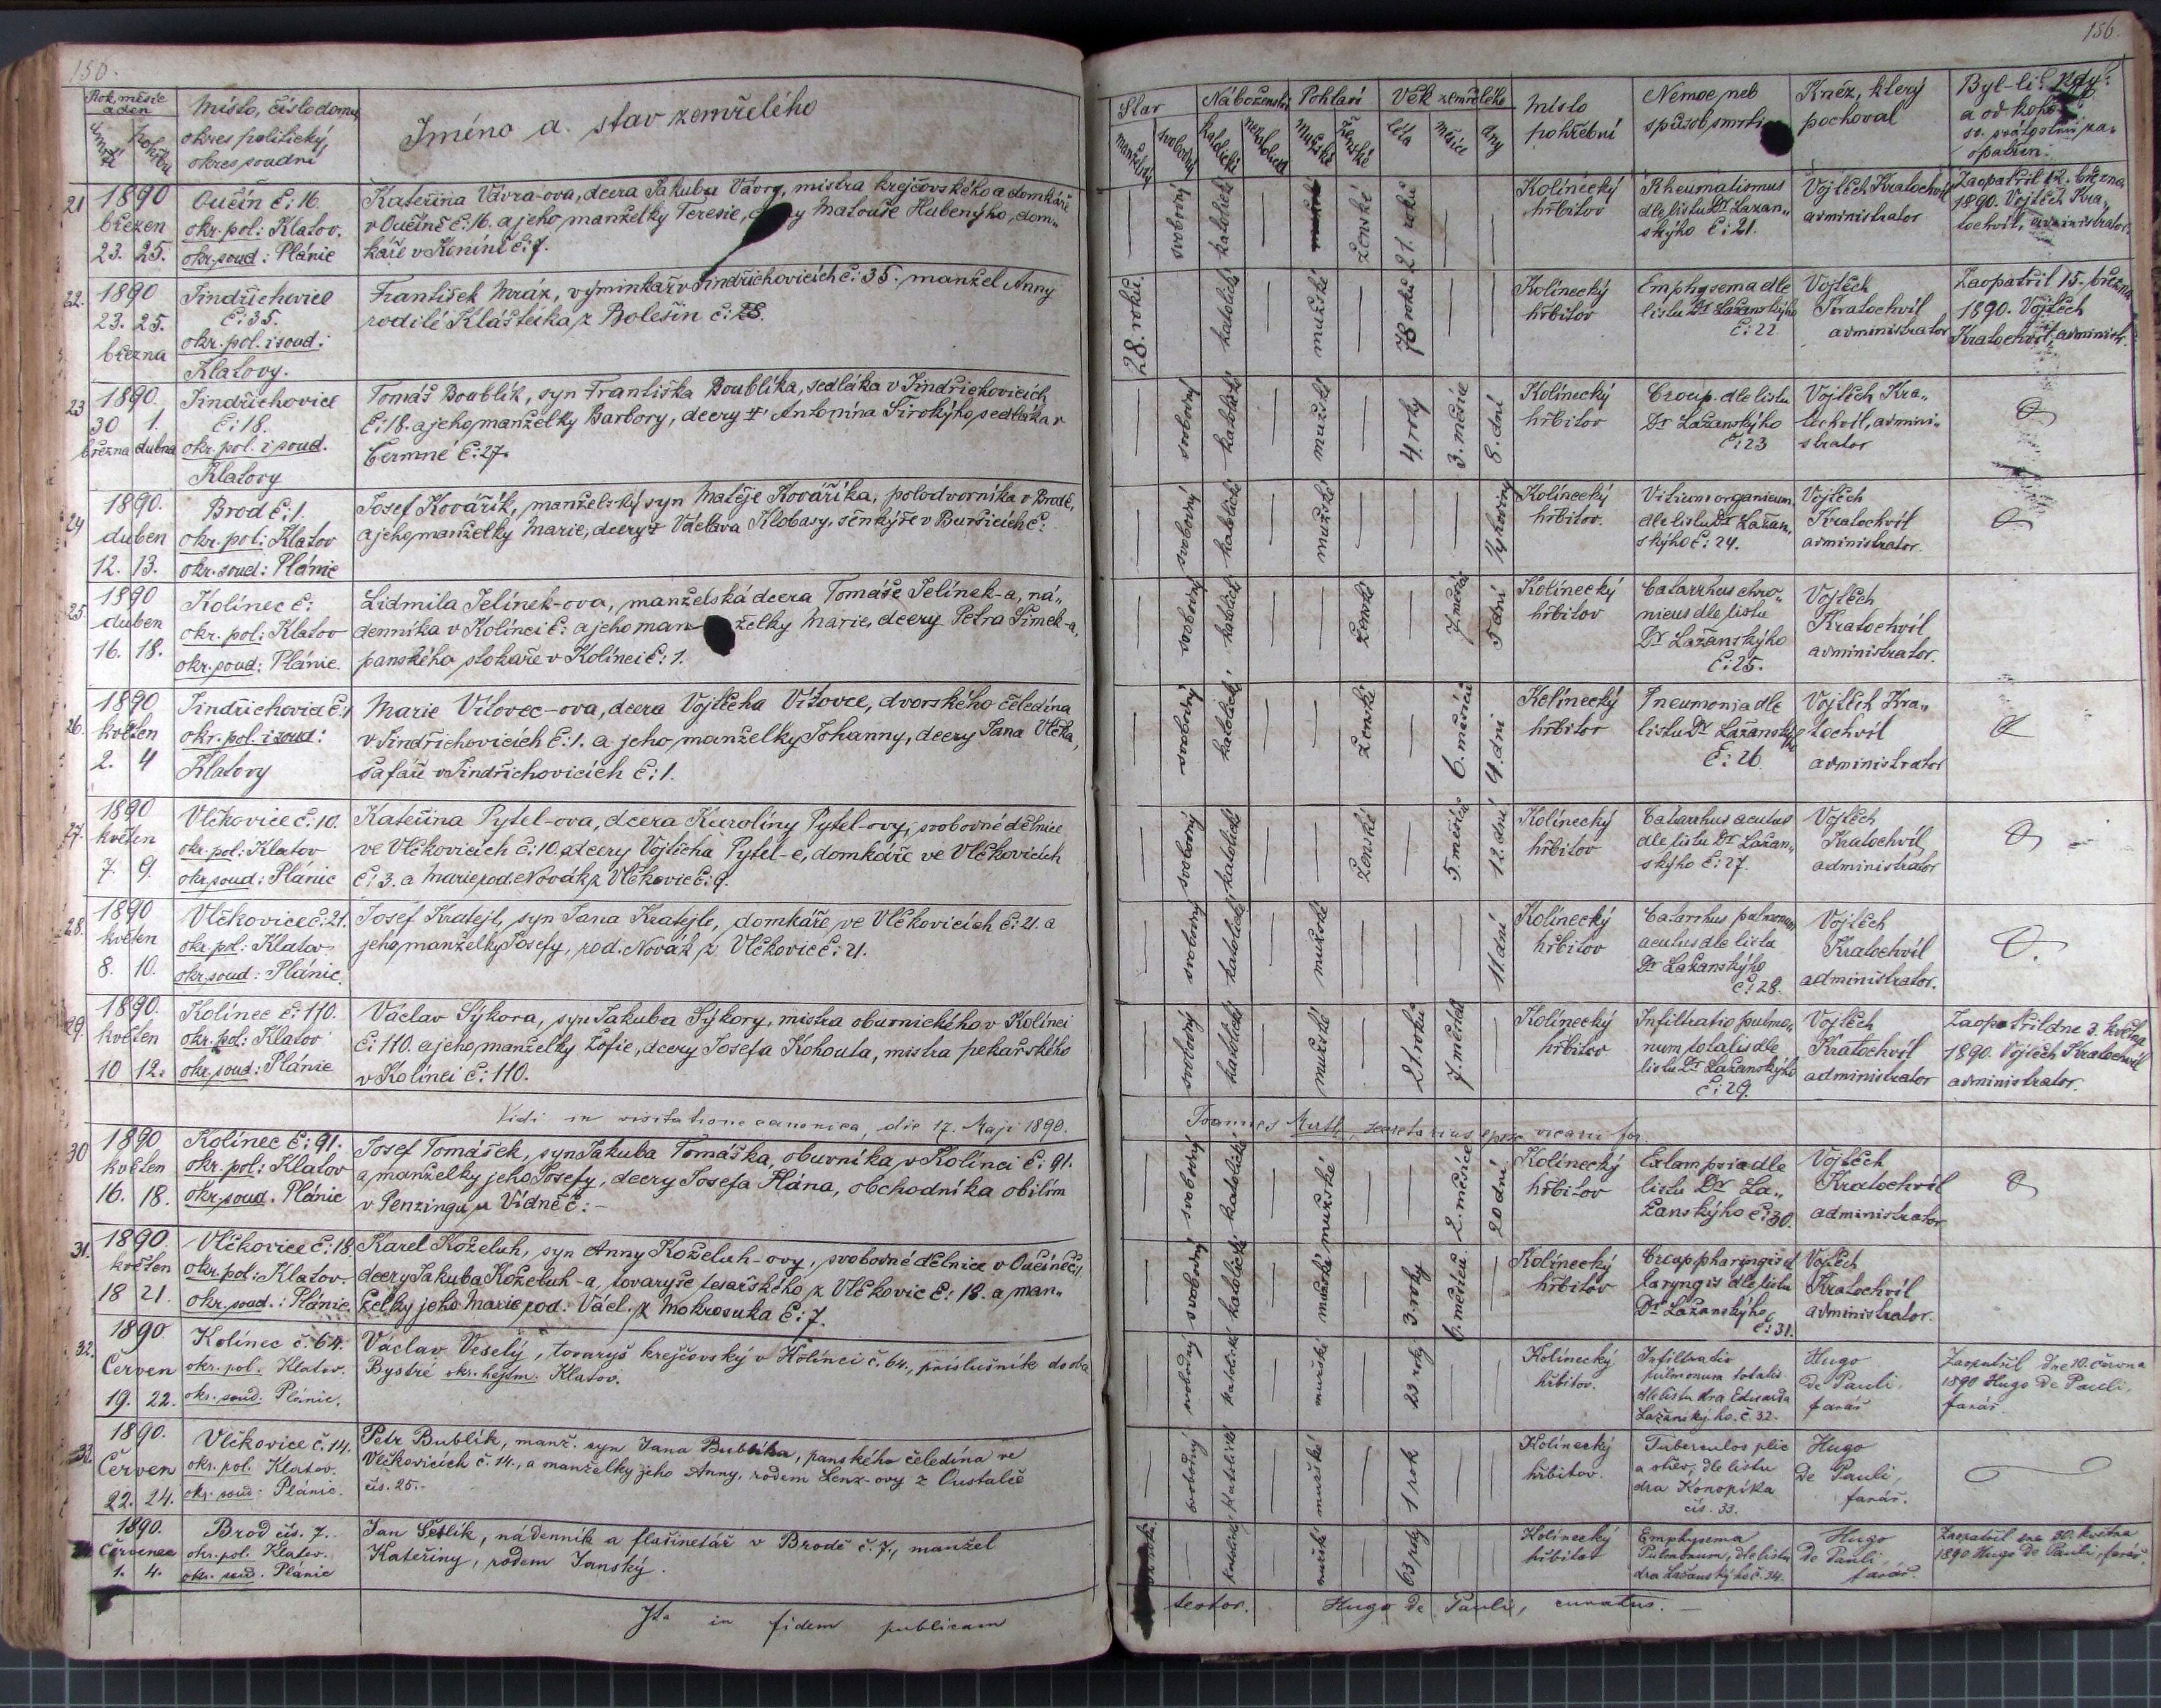 156.
Rok, měsíc
a den
úmrtí
pohřbu
Místo, číslo domu,
okres politický,
okres soudní
Jméno a stav zemřelého
21
1890
březen
23. 25.
Oučín č: 16.
okr. pol: Klatov.
okr. soud: Plánic
Kateřina Vávra-ova, dcera Jakuba Vávry, mistra krejčovského a domkáře
v Oučíně č: 16. a jeho manželky Teresie, Matouše Hubenýho, dom„
káře v Koníně č: 7.
22.
1890
23. 25.
března
Jindřichovice
č: 35.
okr. pol. i soud:
Klatovy.
František Mráz, výminkář v Jindřichovicích č: 35. manžel Anny
rodilé Klášterka z Bolešin č: 28.
23
1890.
30 1.
března dubna
Jindřichovice
č: 18.
okr. pol. i soud.
Klatovy
Tomáš Boublík, syn Františka Boublíka, sedláka v Jindřichovicích
č: 18. a jeho manželky Barbory, dcery Antonína Širokýho, sedláka v
Čermné č: 27.
24
1890.
duben
12. 13.
Brod č: 1.
okr. pol: Klatov
okr. soud: Plánic
Josef Kovářík, manželský syn Matěje Kováříka, polodvorníka v Brodě,
a jeho manželky Marie, dcery Václava Klobasy, šenkýře v Buršicích č:
25
1890
duben
16. 18.
Kolinec č:
okr. pol: Klatov
okr. soud: Plánic.
Lidmila Jelínek-ova, manželská dcera Tomáše Jelínek-a, ná„
denníka v Kolínci č: a jeho man želky Marie, dcery Petra Šimek-a,
panského slokaře v Kolínci č: 1.
26.
1890
květen
2. 4
Jindřichovice č: 1
okr. pol. i soud:
Klatovy
Marie Vítovec-ova, dcera Vojtěcha Vítovce, dvorského čeledína
v Jindřichovicích č: 1. a jeho manželky Johanny, dcery Jana Vlčka,
šafáře v Jindřichovicích č: 1.
27.
1890
květen
7. 9.
Vlčkovice č: 10.
okr. pol: Klatov
okr. soud: Plánic
Kateřina Pytel-ova, dcera Karolíny Pytel-ovy, svobodné dělnice
ve Vlčkovicích č: 10. dcery Vojtěcha Pytel-e, domkáře ve Vlčkovicích
č: 3. a Marie rod. Novák z Vlčkovic č: 9.
28.
1890
květen
8. 10.
Vlčkovice č: 21.
okr. pol: Klatov
okr. soud: Plánic.
Josef Kratejl, syn Jana Kratejle, domkáře ve Vlčkovicích č: 21. a
jeho manželky Josefy, rod. Novák z Vlčkovic č: 21.
29.
1890.
květen
10 12.
Kolínec č: 110.
okr. pol: Klatov
okr. soud: Plánic
Václav Sýkora, syn Jakuba Sýkory, mistra obuvnického v Kolínci
č: 110. a jeho manželky Žofie, dcery Josefa Kohouta, mistra pekařského
v Kolínci č: 110.
Vidi in visitatione canonica, die 17. Maji 1890.
30
1890
květen
16. 18.
Kolínec č: 91.
okr. pol: Klatov
okr. soud. Plánic
Josef Tomášek, syn Jakuba Tomáška, obuvníka v Kolínci č: 91.
a manželky jeho Josefy, dcery Josefa Hána, obchodníka obilím
v Penzingu u Vídně č: –
31.
1890
květen
18 21.
Vlčkovice č: 18
okr. pol: Klatov.
okr. soud.: Plánic.
Karel Koželuh, syn Anny Koželuh-ovy, svobodné dělnice v Oučíně č: 1
dcery Jakuba Koželuh-a, tovaryše tesařského z Vlčkovic č: 18. a man„
želky jeho Marie rod. Václ. z Mokrosuka č: 7.
32.
1890.
Červen
19. 22.
Kolínec č. 64.
okr. pol. Klatov.
okr. soud. Plánic.
Václav Veselý, tovaryš krejčovský v Kolínci č. 64., příslušník do
Bystré okr. hejtm. Klatov.
33.
1890.
Červen
22. 24.
Vlčkovice č. 14.
okr. pol. Klatov.
okr. soud: Plánic.
Petr Bublík, manž. syn Jana Bublíka, panského čeledína ve
Vlčkovicích č. 14., a manželky jeho Anny, rodem Lenz-ovy z Oustaleč
čís. 25.-
1890.
Červenec
1. 4.
Brod čís. 7.
okr. pol. Klatov.
okr. soud. Plánic
Jan Šetlík, nádenník a flašinetář v Brodě č. 7., manžel
Kateřiny, rodem Janský.
Ita in fidem publicam
156.
Stav
Náboženství
Pohlaví
Věk zemřelého
Místo
pohřební
Nemoc neb
způsob smrti
Kněz, který
pochoval
Byl-li: kdy:
a od koho
sv. svátostmi za„
opatřen:
manželský
svobodný
katolické
nekatolické
mužské
ženské
léta
měsíce
dny
svobodný
katolické
ženské
21. roků
Kolínecký
hřbitov
Rheumatismus
dle listu Dr Lazan„
skýho č: 21.
Vojtěch Kratochvíl
administrator
Zaopatřil 12. března
1890. Vojtěch Kra„
tochvíl, administrator.
28. roků.
katolické
mužské
78 roků
Kolínecký
hřbitov
Emphysema dle
listu Dr Lažanskýho
č: 22.
Vojtěch
Kratochvíl
administrator
Zaopatřil 15. března
1890. Vojtěch
Kratochvíl, administr.
svobodný
katolické
mužské
4. roky
3. měsíce
8. dní
Kolínecký
hřbitov
Croup. dle listu
Dr Lažanskýho
č: 23
Vojtěch Kra„
tochvíl, admini„
strator
svobodný
katolické
mužské
1/4 hodiny
Kolínecký
hřbitov.
Vitium organicum.
dle listu Dr Lažan„
skýho č: 24.
Vojtěch
Kratochvíl
administrator.
svobodný
katolické
ženské
7. měsíců
5 dní
Kolínecký
hřbitov
Catarrhus chro„
nicus dle listu
Dr Lažanskýho
č: 25.
Vojtěch
Kratochvíl
administrator.
svobodný
katolické
ženské
6. měsíců
4. dni
Kolínecký
hřbitov
Pneumonia dle
listu Dr Lažanskýho
č: 26.
Vojtěch Kra„
tochvíl
administrator
svobodný
katolické
ženské
5. měsíců
12. dní
Kolínecký
hřbitov
Catarrhus acutus
dle listu Dr Lažan„
skýho č: 27.
Vojtěch
Kratochvíl,
administrator
svobodný
katolické
mužské
11. dní
Kolínecký
hřbitov
Catarrhus pulmonum
acutus dle listu
Dr Lažanskýho
č: 28.
Vojtěch
Kratochvíl
administrator.
svobodný
katolické
mužské
21 roků
7. měsíců
Kolínecký
hřbitov
Infiltratio pulmo„
num totalis dle
listu Dr Lažanskýho
č: 29.
Vojtěch
Kratochvíl
administrator
Zaopatřil dne 3. května
1890. Vojtěch Kratochvíl
administrator.
Joannes secretarius episc. vicarii for.
svobodný
katolické
mužské
2. měsíce
20 dní
Kolínecký
hřbitov
Exlampsia dle
listu Dr La„
žanskýho č: 30.
Vojtěch
Kratochvíl
administrator
svobodný
katolické
mužské
3. roky
6. měsíců.
Kolínecký
hřbitov
Croup pharyngis et
laryngis dle listu
Dr Lažanskýho
č: 31.
Vojtěch
Kratochvíl
administrator.
svobodný
katolické
mužské
23 roky
Kolínecký
hřbitov.
Infiltratio
pulmonum totalis
dle listu dra Eduarda
Lažanskýho. č. 32.
Hugo
de Pauli,
farář
Zaopatřil dne 10. června
1890 Hugo de Pauli,
farář.
svobodný
katolické
mužské
1 rok
Kolínecký
hřbitov.
Tuberculos plic
a střev, dle listu
dra Konopíka
čís. 33.
Hugo
de Pauli,
farář.
katolické
mužské
63 roky
Kolínecký
hřbitov
Emphysema
Pulmonum, dle listu
dra Lažanskýho č. 34.
Hugo
de Pauli,
farář.
Zaopatřil dne 30. května
1890 Hugo de Pauli, farář.
testor. Hugo de Pauli, curatus. –